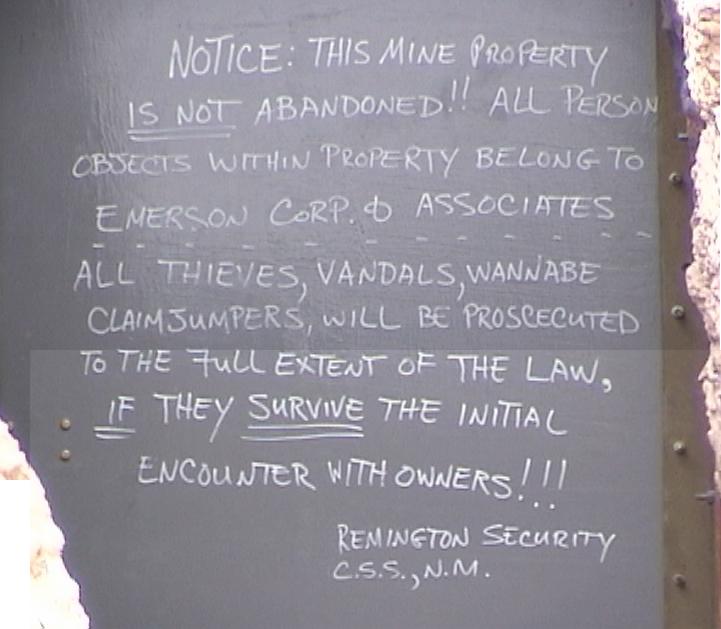 NOTICE: THIS MINE PROPERTY
IS NOT ABANDONED!! ALL PERSON
OBJECTS WITHIN PROPERTY BELONG TO
EMERSON CORP. & ASSOCIATES
- - - - - - - - - - - - -
ALL THIEVES, VANDALS, WANNABE
CLAIMJUMPERS, WILL BE PROSCECUTED
TO THE FULL EXTENT OF THE LAW,
IF THEY SURVIVE THE INITIAL
ENCOUNTER WITH OWNERS!!!
REMINGTON SECURITY
C.S.S., N.M.